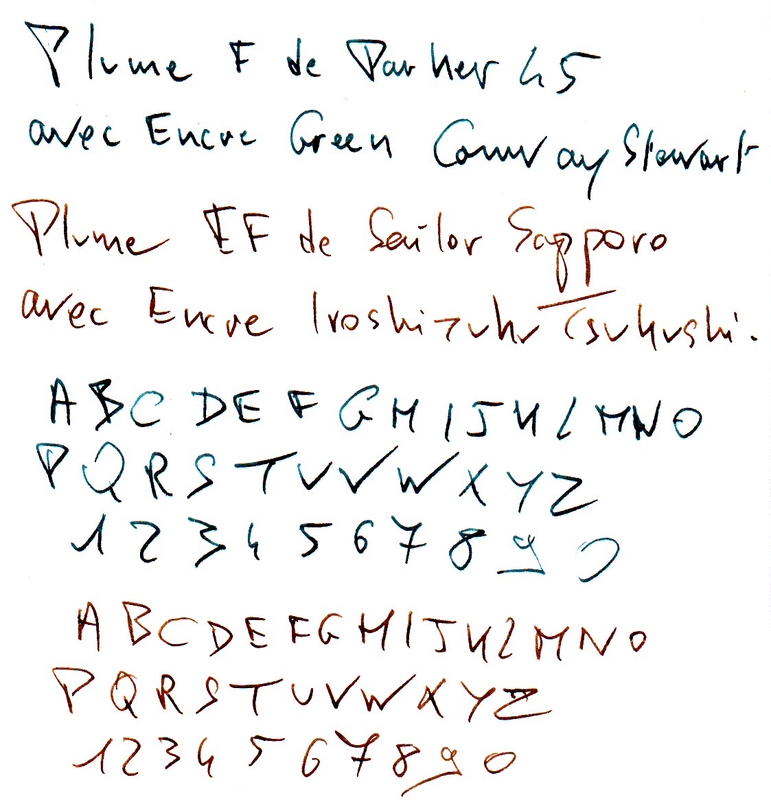 Plume F de Parker 45
avec Encre Green Conway Stewart
Plume EF de Sailor Sapporo
avec Encre Iroshizuku Tsukushi.
A B C D E F G H I J K L M N O
P Q R S T U V W X Y Z
1 2 3 4 5 6 7 8 9 0
A B C D E F G H I J K L M N O
P Q R S T U V W X Y Z
1 2 3 4 5 6 7 8 9 0